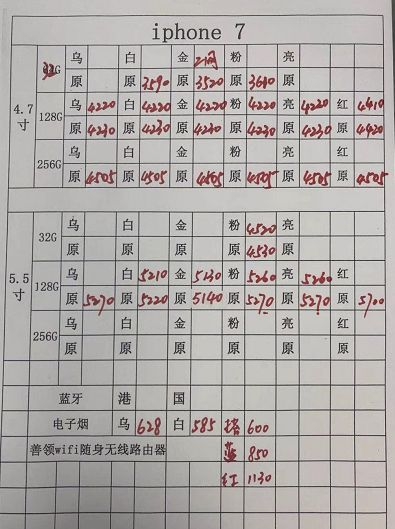 iphone 7
4.7寸 32G 乌 白 金 2网 粉 亮
原 原 3590 原 3520 原 3680 原
128G 乌 4220 白 4220 金 4220 粉 4220 亮 4220 红 4410
原 4230 原 4230 原 4230 原 4230 原 4230 原 4420
256G 乌 白 金 粉 亮 红
原 4505 原 4505 原 4505 原 4505 原 4505 原 4505
5.5寸 32G 乌 白 金 粉 4520 亮
原 原 原 原 4530 原
128G 乌 白 5210 金 5130 粉 5260 亮 5260 红
原 5270 原 5220 原 5140 原 5270 原 5270 原 5700
256G 乌 白 金 粉 亮 红
原 原 原 原 原 原
蓝牙 港 国
电子烟 乌 628 白 585 600
善领wifi随身无线路由器 蓝 850
红 1130